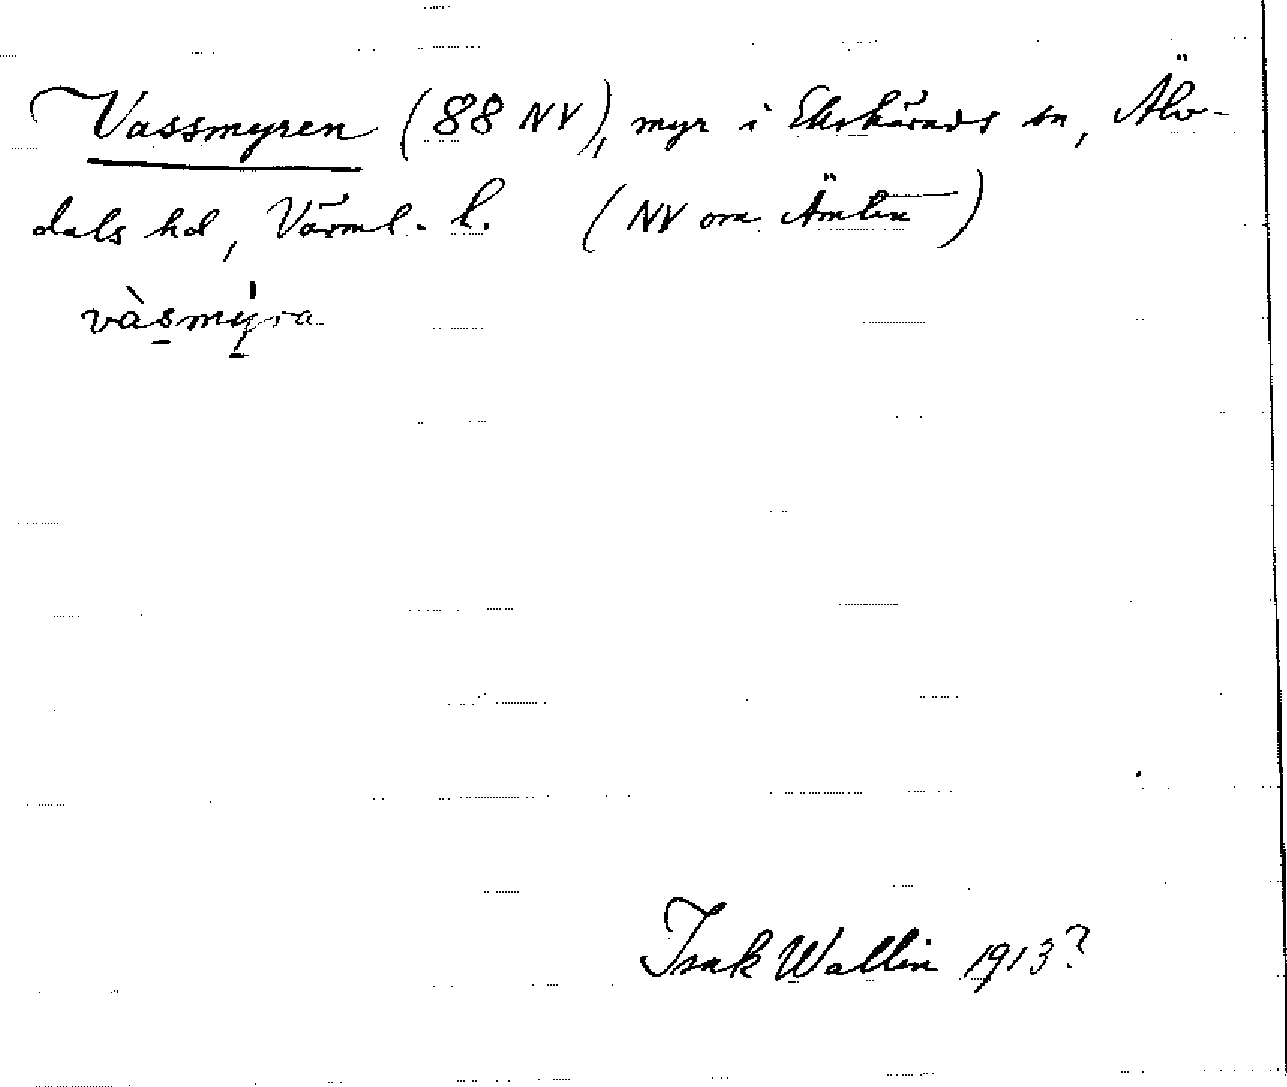 Vassmyren (88 NV), myr i Ekshärads sn, Älv-
dals hd, Värml. l. (NV om Ämten)
vàsmýra
Isak Wallin 1913?